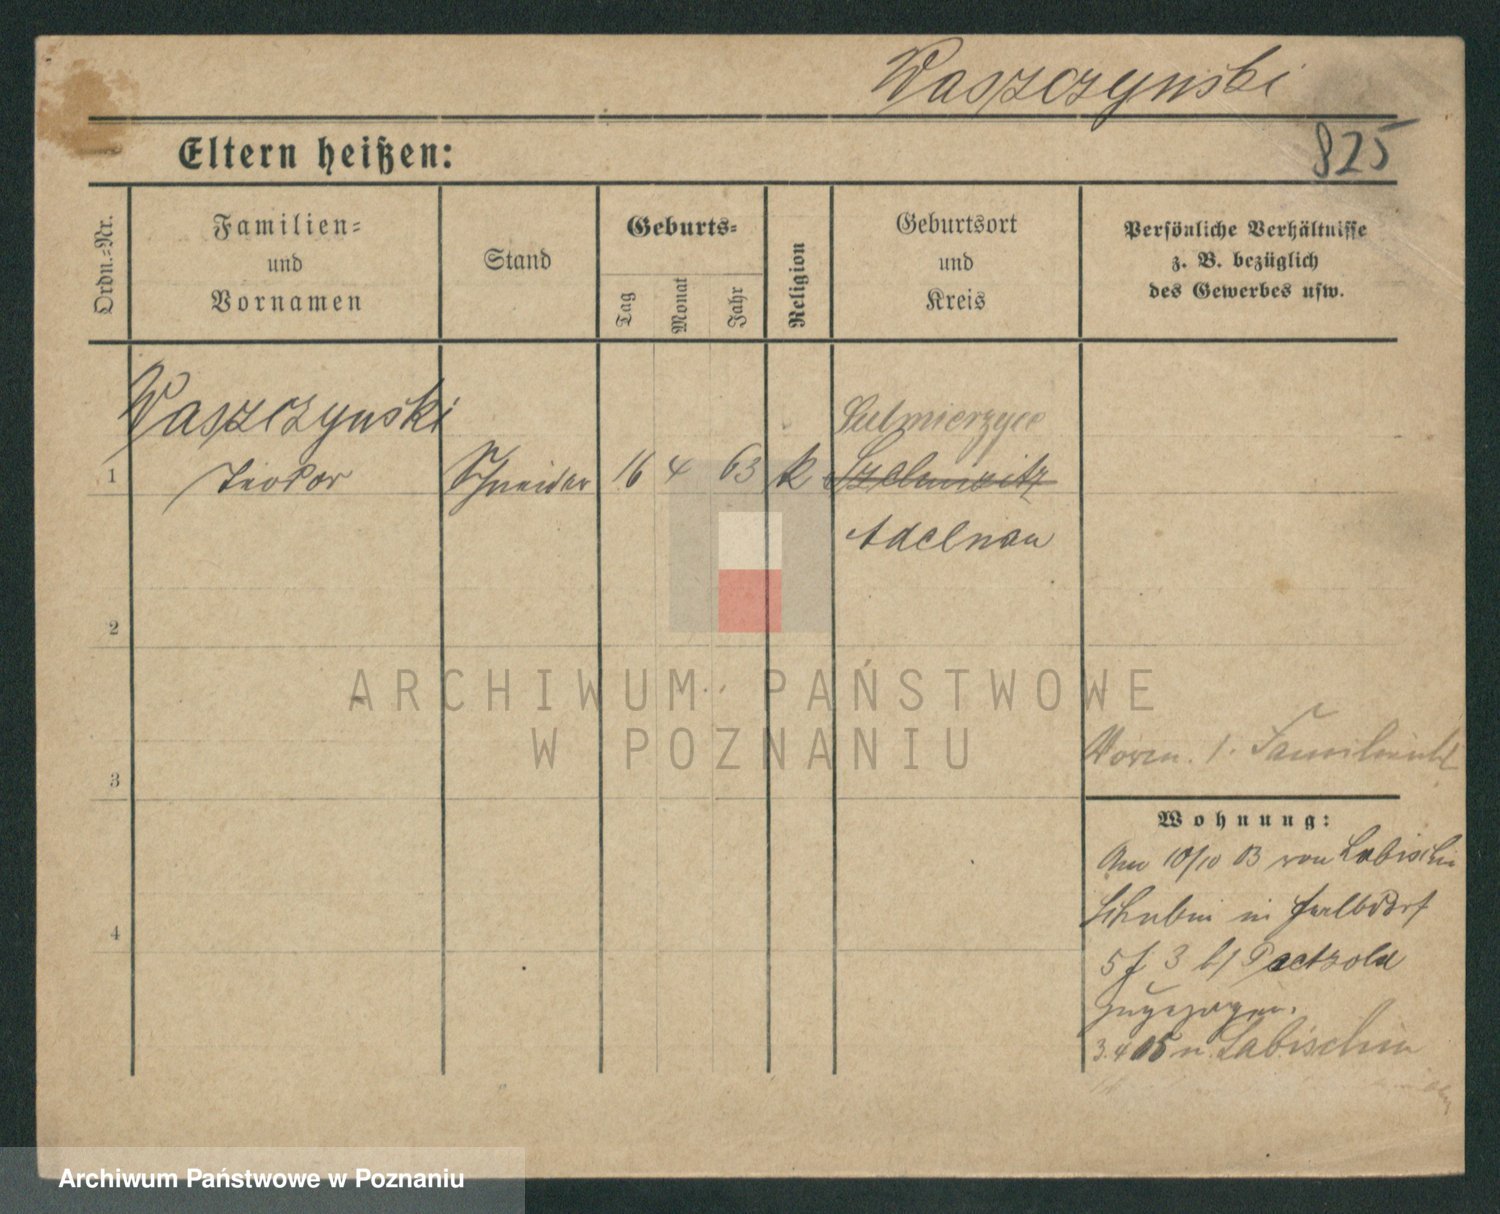 Waszczynski
825
Eltern heißen:
Ordn.-Nr.
Familien-
und
Vornamen
Stand
Geburts-
Tag
Monat
Jahr
Religion
Geburtsort
und
Kreis
Persönliche Verhältnisse
z. B. bezüglich
des Gewerbes usw.
Waszczynski
Sulmierzyce
1 Teodor Schneider 16 4 63 k
Adelnau
2
ARCHIWUM PAŃSTWOWE
W POZNANIU
3
Wohnung:
Am 10/10 03 von Labischin
Schubin in
4
5 3 Paetzold
zugezogen.
3.4 05 n. Labischin
Archiwum Państwowe w Poznaniu